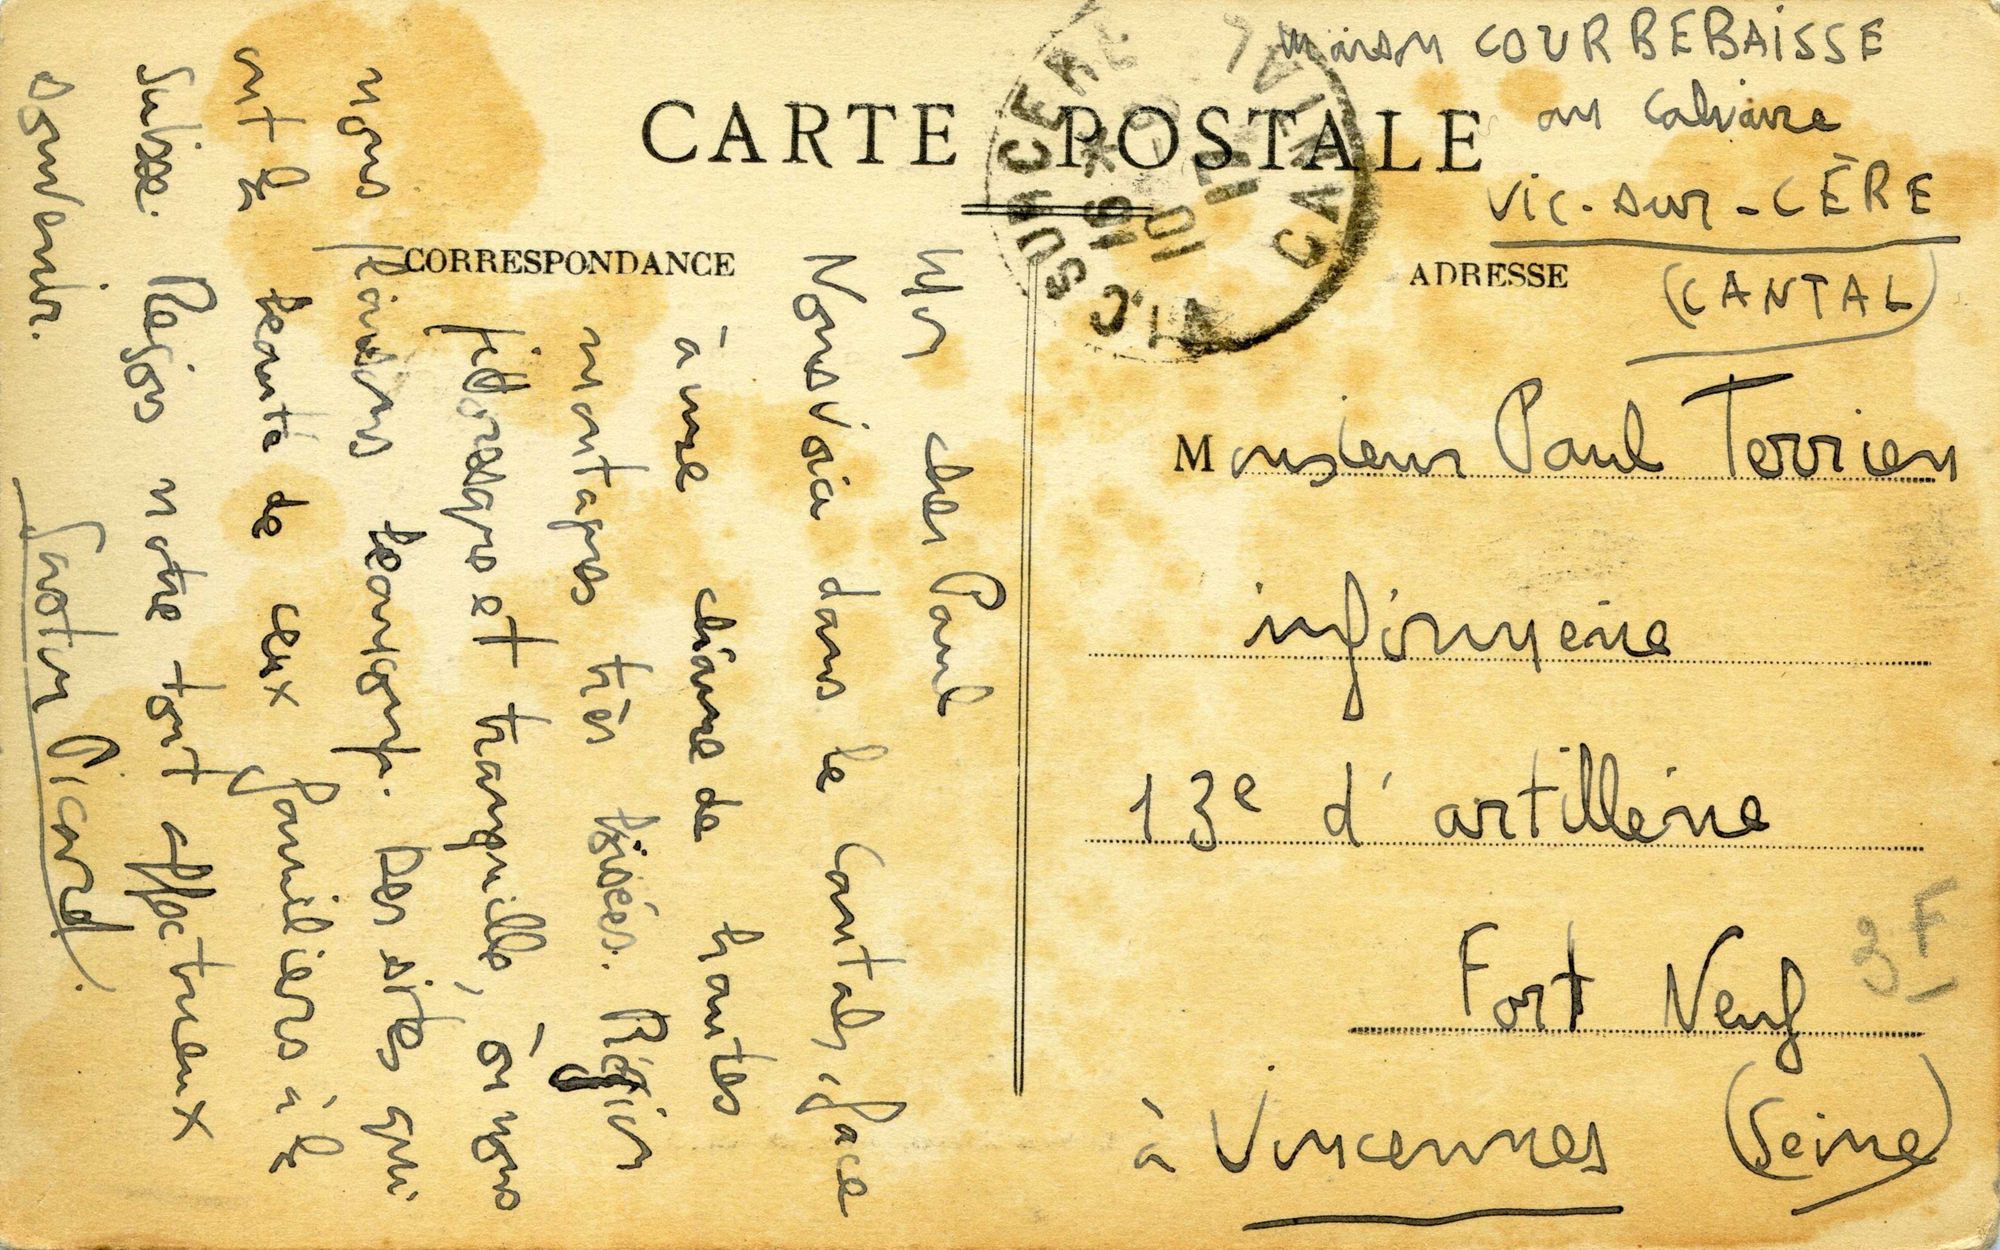 CARTE POSTALE
maison COURBEBAISSE
au Calvaire
VIC-sur-CÈRE
(CANTAL)
VIC SUR CERE
CANTAL
16
10
17
CORRESPONDANCE
ADRESSE
Mon cher Paul
Nous voici dans le Cantal, face
à une chaine de hautes
montagnes très boisées. Région
pittoresque et tranquille, où nous
nous plaisons beaucoup. Des sites qui
ont la beauté de ceux familiers à la
Suisse. Reçois notre tout affectueux
souvenir. Gaston Picard.
Monsieur Paul Terrien
infirmerie
13e d'artillerie
Fort Neuf
à Vincennes (Seine)
3F